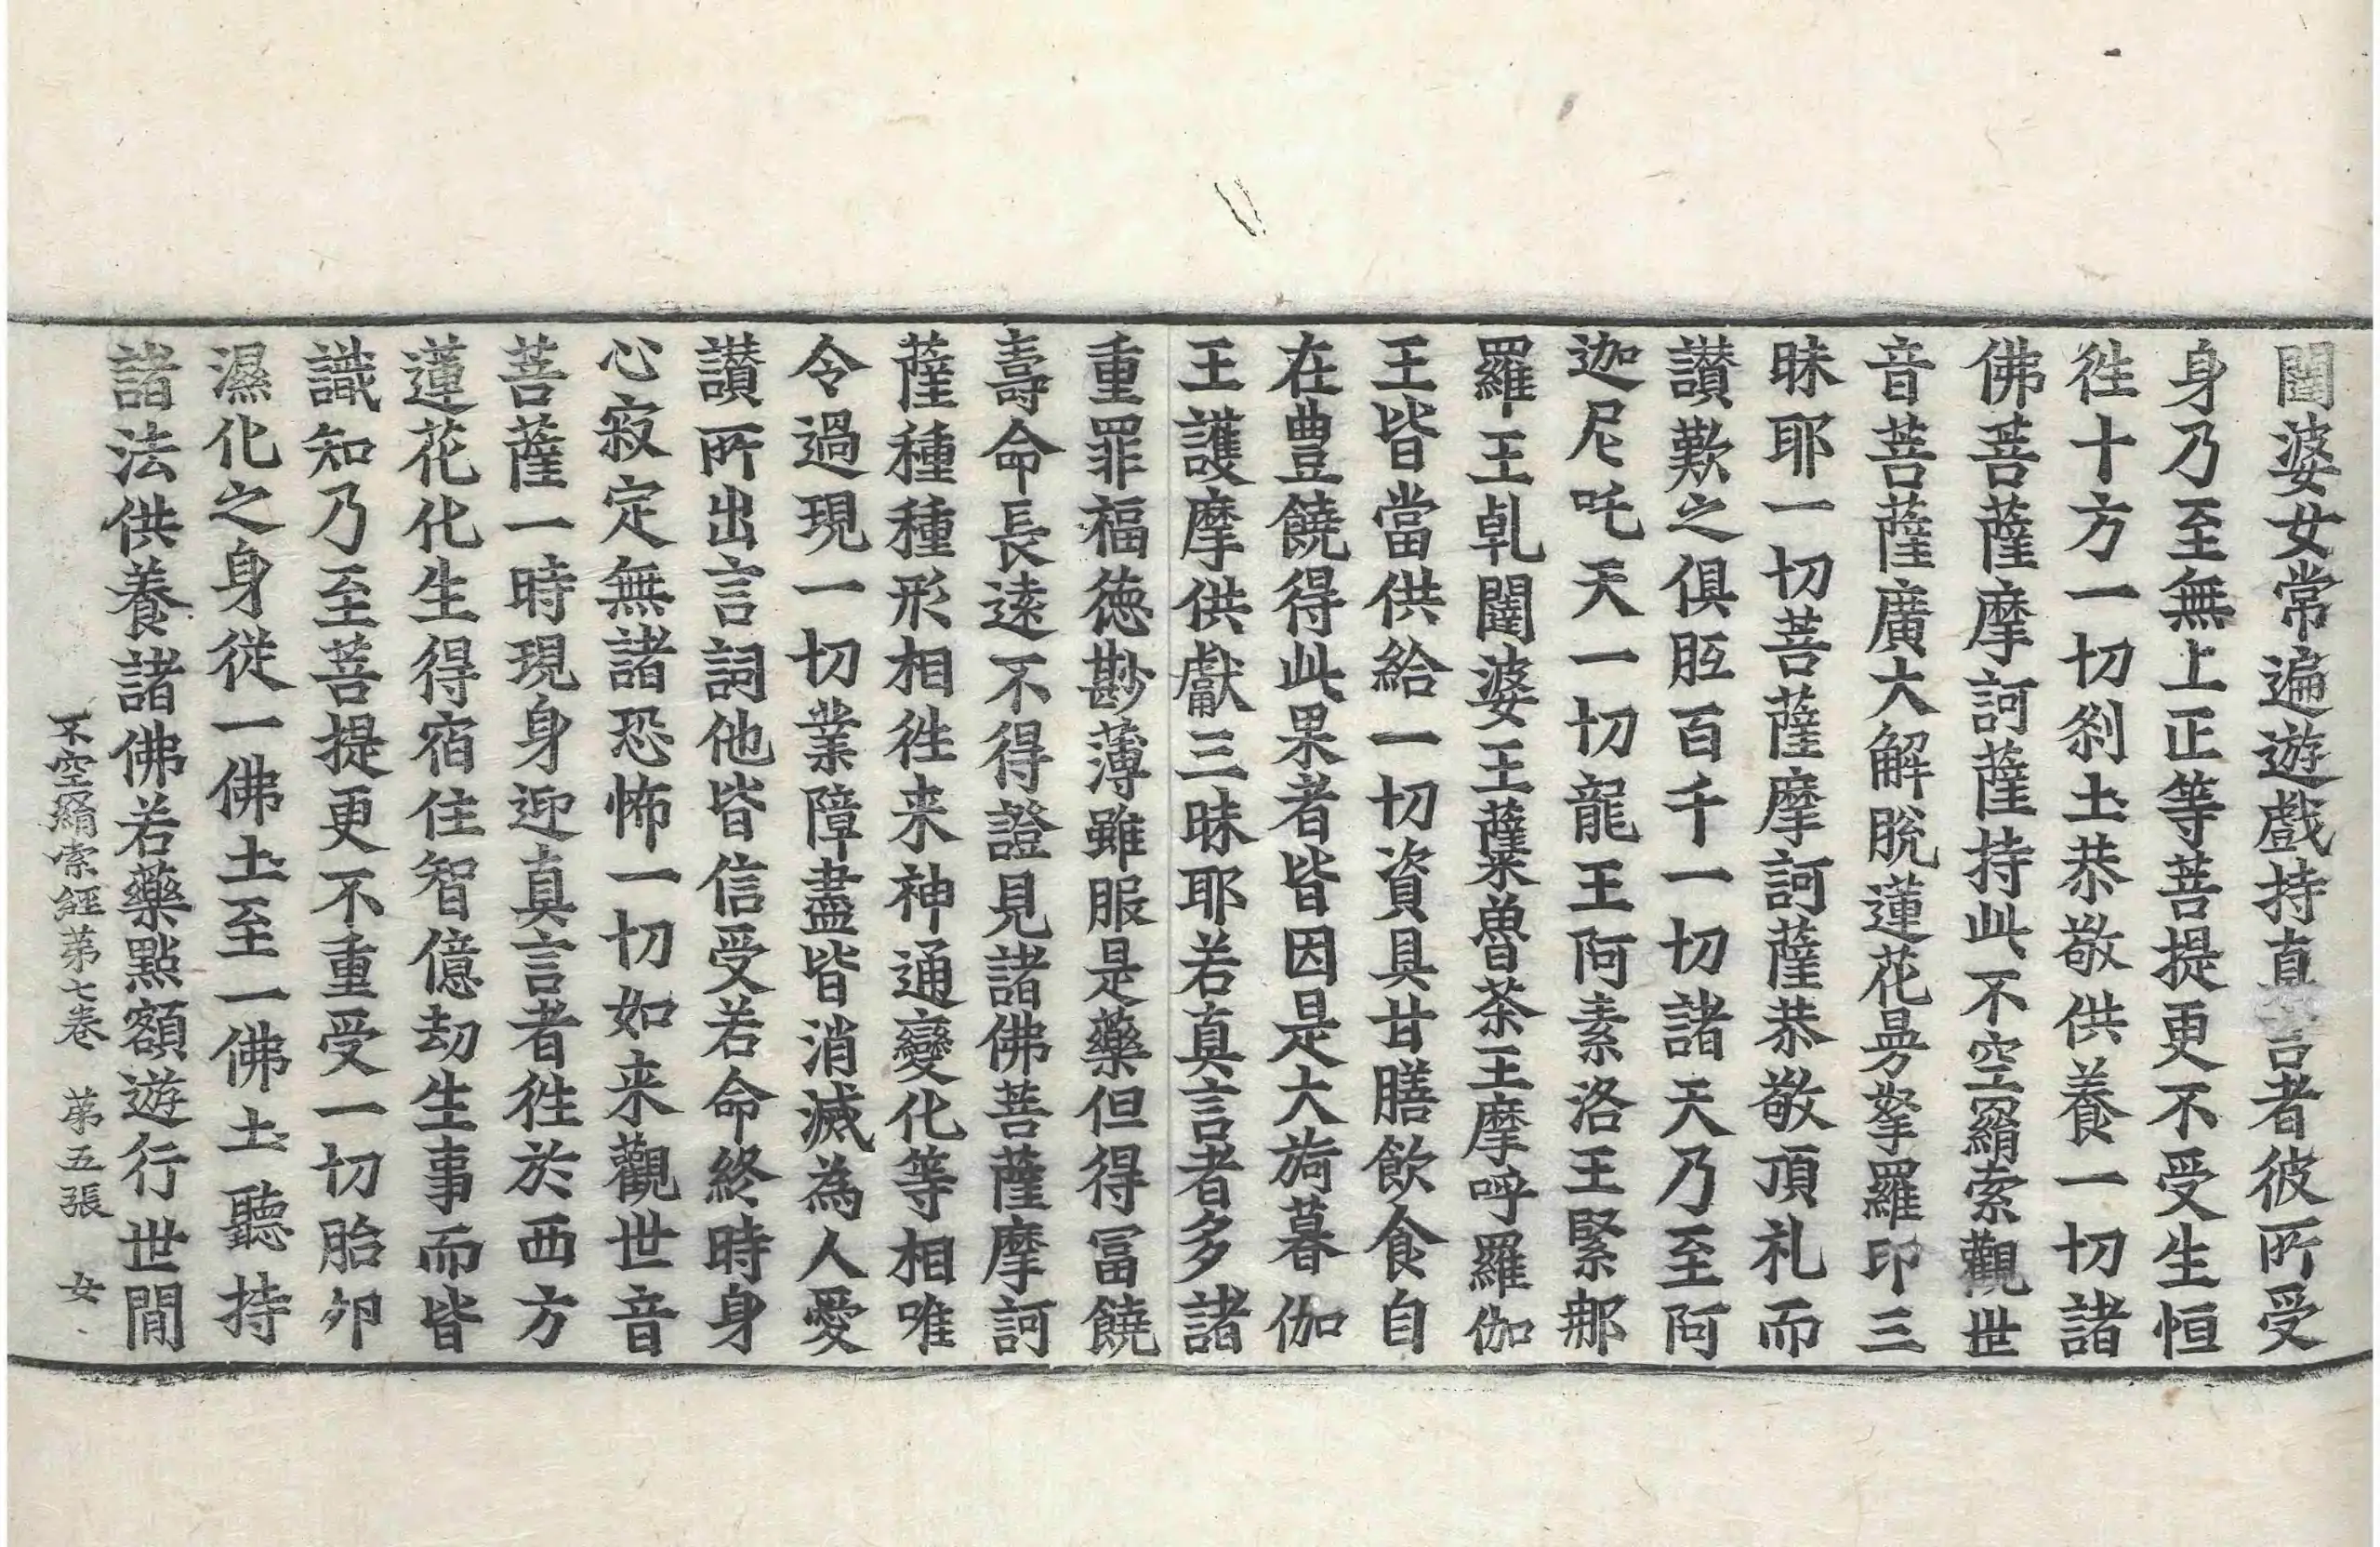 闥婆女常遍遊戲持真言者彼所受
身乃至無上正等菩提更不受生恒
往十方一切刹土恭敬供養一切諸
佛菩薩摩訶薩持此不空羂索觀世
音菩薩廣大解脫蓮花曼拏羅印三
昧耶一切菩薩摩訶薩恭敬頂礼而
讃歎之俱胝百千一切諸天乃至阿
迦尼吒天一切龍王阿素洛王緊那
羅王乹闥婆王蘖魯荼王摩呼羅伽
王皆當供給一切資具甘膳飲食自
在豊饒得此果者皆因是大旖暮伽
王護摩供獻三昧耶若真言者多諸
重罪福德尠薄雖服是藥但得冨饒
壽命長遠不得證見諸佛菩薩摩訶
薩種種形相往来神通變化等相唯
令過現一切業障盡皆消滅為人愛
讃所出言詞他皆信受若命終時身
心寂定無諸恐怖一切如来觀世音
菩薩一時現身迎真言者往於西方
蓮花化生得宿住智億劫生事而皆
識知乃至菩提更不重受一切胎卵
濕化之身從一佛土至一佛土聽持
諸法供養諸佛若藥點額遊行世間
不空羂索經第七卷 第五張 女